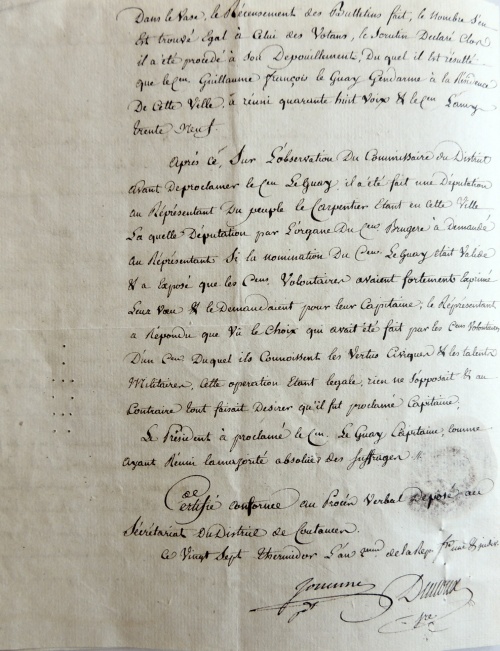 Dans le Vase, le Récensement des Bulletins fait, le Nombre s'en
Est trouvé Egal à Celui des Votans, le Scrutin Declaré Clos
il a été procédé à Son Depouillement, Du quel il Est résulté
que le Cen. Guillaume François le Guay Gendarme à la Résidence
De Cette Ville, à réuni quarante huit Voix & le Cen
trente Neuf.
Après Cé, Sur L'observation Du Commissaire du District
avant De proclamer le Cen Le Guay, il a été fait une Députation
au Réprésentant Du peuple le Carpentier Etant en Cette Ville
La quelle Députation par L'organe Du Cen. Brugere à demandé
au Réprésentant Si la nomination Du Cen. Le Guay était Valide
& a Exposé que les Cens. Volontaires avaient fortement Exprimé
Leur vœu & le Demandaient pour leur Capitaine; le Réprésentant
a Répondu que Vû le Choix qui avait été fait par les Cens Volontaires
D'un Cen. Duquel ils Connoissent les Vertus Civiques & les talents
Militaires, Cette opération Etant legale, rien ne s'opposait & au
Contraire tout faisait Desirer qu'il fut proclamé Capitaine.
Le Président à proclamé le Cen. Le Guay Capitaine, comme
ayant Réuni la majorité absolue des Suffrages.
Certifié conforme au Procès Verbal Déposé au
Sécrétariat Du District de Coutances.
Ce Vingt Sept Thermidor L'an 2eme de la Rep. fse une & indiv.